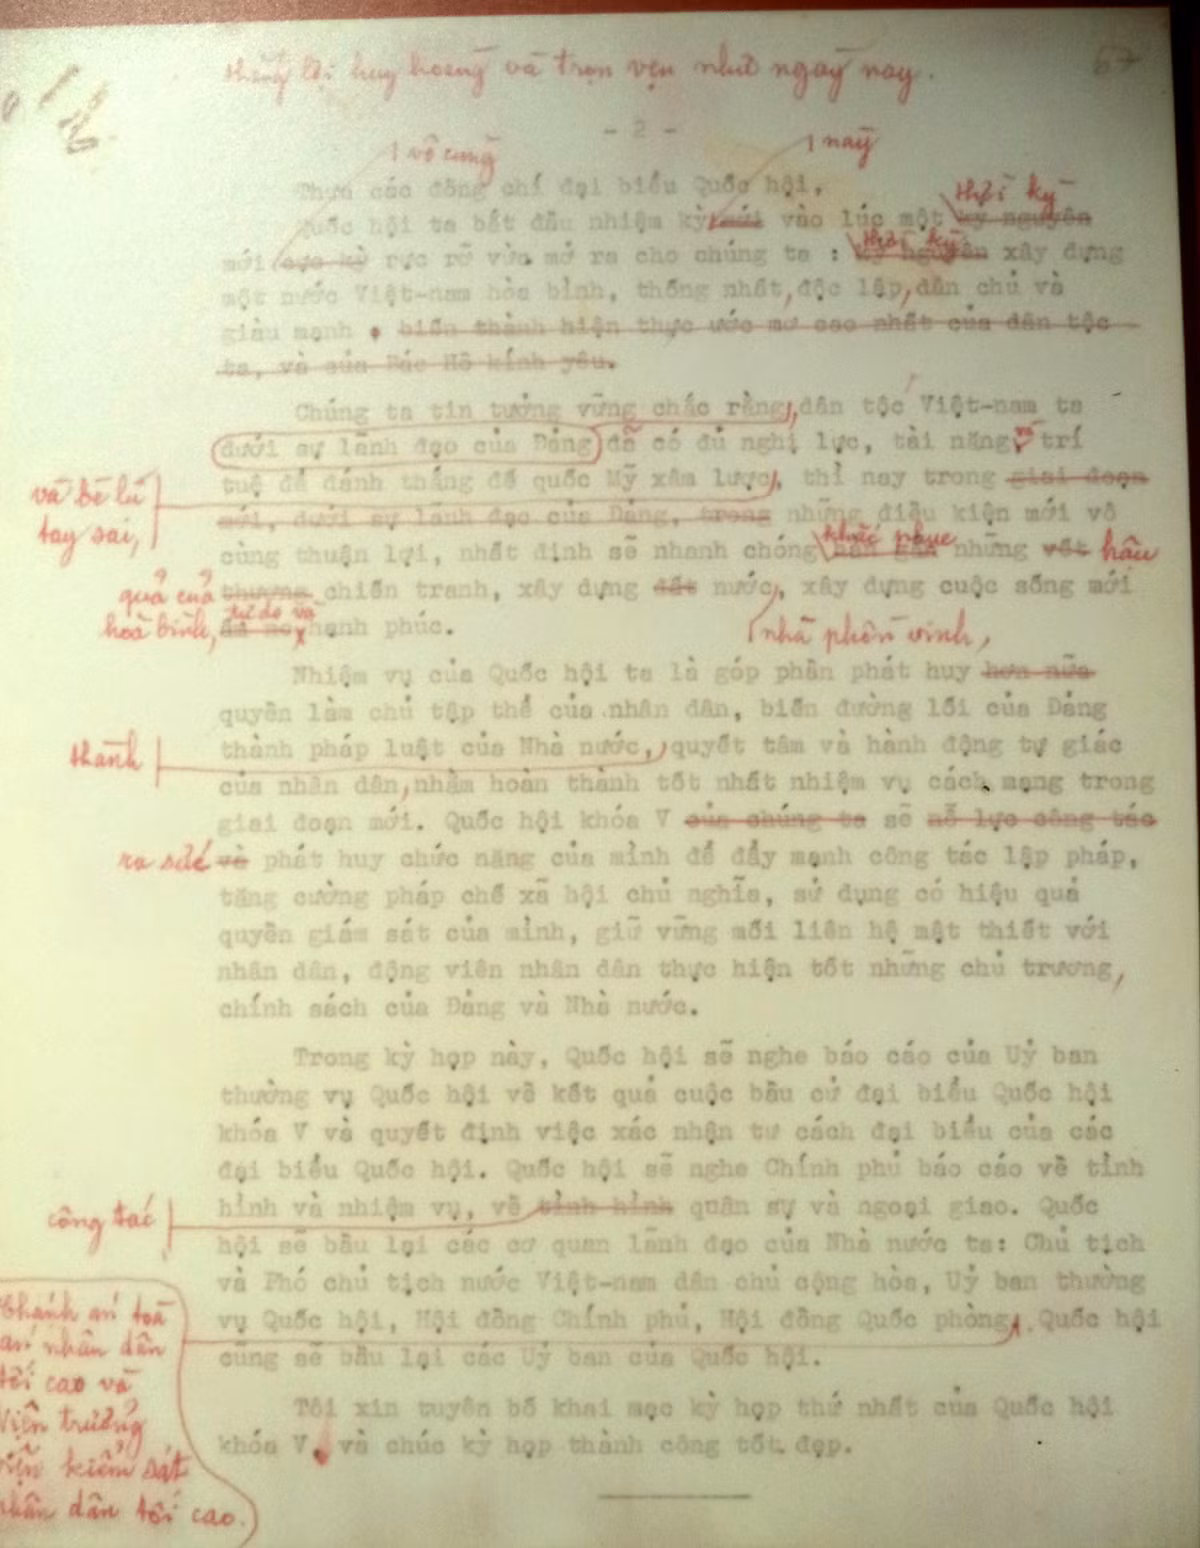 thắng lợi huy hoàng và trọn vẹn như ngày nay.
67
- 2 -
vô cùng
này
Thưa các đồng chí đại biểu Quốc hội,
thời kỳ
Quốc hội ta bắt đầu nhiệm kỳ mới vào lúc một kỷ nguyên
thời kỳ
mới cực kỳ rực rỡ vừa mở ra cho chúng ta : kỷ nguyên xây dựng
một nước Việt-nam hòa bình, thống nhất, độc lập, dân chủ và
giàu mạnh . biến thành hiện thực ước mơ cao nhất của dân tộc
ta, và của Bác Hồ kính yêu.
Chúng ta tin tưởng vững chắc rằng, dân tộc Việt-nam ta
dưới sự lãnh đạo của Đảng đã có đủ nghị lực, tài năng, và trí
và bè lũ
tuệ để đánh thắng đế quốc Mỹ xâm lược, thì nay trong giai đoạn
tay sai,
mới, dưới sự lãnh đạo của Đảng, trong những điều kiện mới vô
khắc phục
cùng thuận lợi, nhất định sẽ nhanh chóng hàn gắn những vết hậu
quả của thương chiến tranh, xây dựng đất nước, xây dựng cuộc sống mới
tự do và
hoà bình, hạnh phúc.
nhà phồn vinh,
Nhiệm vụ của Quốc hội ta là góp phần phát huy hơn nữa
quyền làm chủ tập thể của nhân dân, biến đường lối của Đảng
thành
thành pháp luật của Nhà nước, quyết tâm và hành động tự giác
của nhân dân, nhằm hoàn thành tốt nhất nhiệm vụ cách mạng trong
giai đoạn mới. Quốc hội khóa V của chúng ta sẽ nỗ lực công tác
ra sức và phát huy chức năng của mình để đẩy mạnh công tác lập pháp,
tăng cường pháp chế xã hội chủ nghĩa, sử dụng có hiệu quả
quyền giám sát của mình, giữ vững mối liên hệ mật thiết với
nhân dân, động viên nhân dân thực hiện tốt những chủ trương,
chính sách của Đảng và Nhà nước.
Trong kỳ họp này, Quốc hội sẽ nghe báo cáo của Uỷ ban
thường vụ Quốc hội về kết quả cuộc bầu cử đại biểu Quốc hội
khóa V và quyết định việc xác nhận tư cách đại biểu của các
đại biểu Quốc hội. Quốc hội sẽ nghe Chính phủ báo cáo về tình
công tác
hình và nhiệm vụ, về tình hình quân sự và ngoại giao. Quốc
hội sẽ bầu lại các cơ quan lãnh đạo của Nhà nước ta: Chủ tịch
và Phó chủ tịch nước Việt-nam dân chủ cộng hòa, Uỷ ban thường
vụ Quốc hội, Hội đồng Chính phủ, Hội đồng Quốc phòng. Quốc hội
cũng sẽ bầu lại các Uỷ ban của Quốc hội.
Chánh án toà
án nhân dân
tối cao và
Viện trưởng
viện kiểm sát
nhân dân tối cao.
Tôi xin tuyên bố khai mạc kỳ họp thứ nhất của Quốc hội
khóa V, và chúc kỳ họp thành công tốt đẹp.